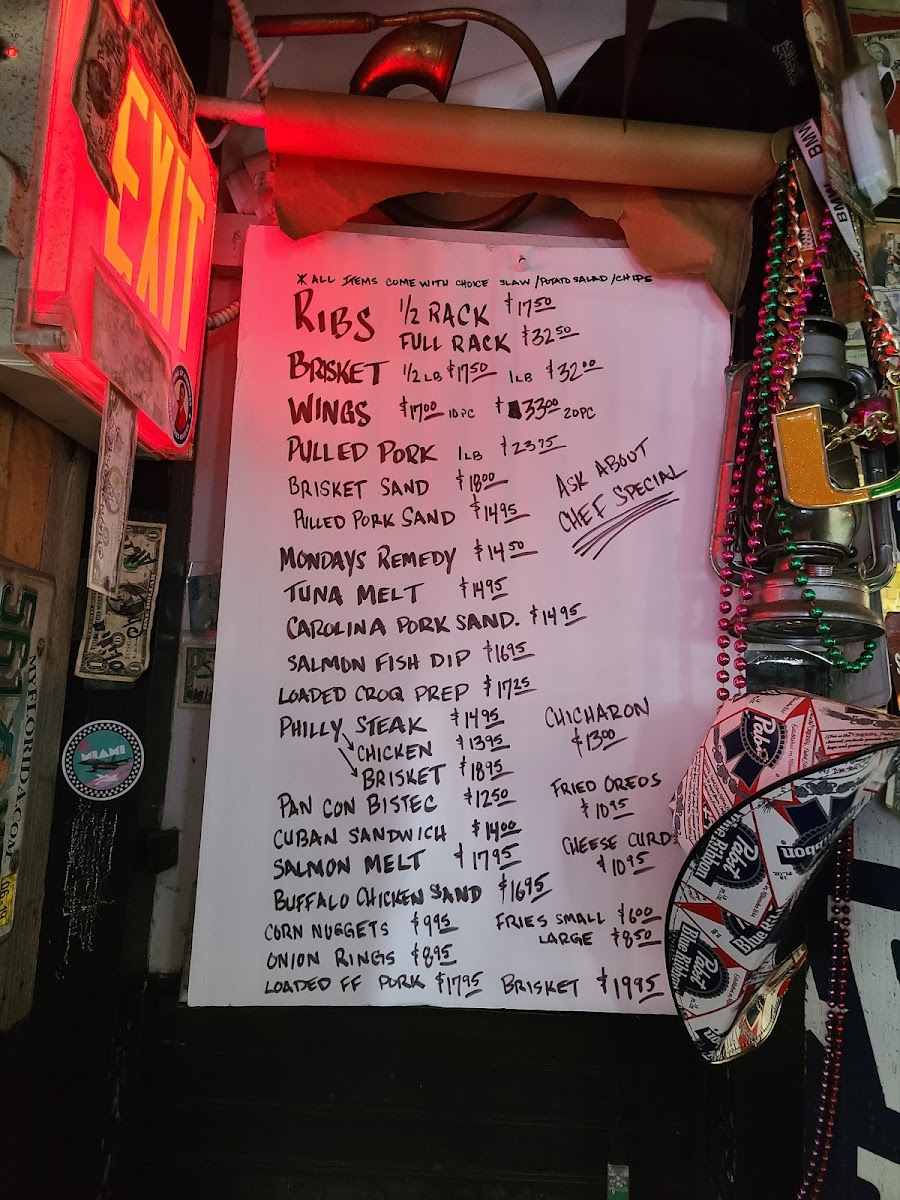 EXIT
* ALL ITEMS COME WITH CHOICE SLAW / POTATO SALAD / CHIPS
RIBS 1/2 RACK $17.50
FULL RACK $32.50
BRISKET 1/2 LB $17.50 1LB $32.00
WINGS $17.00 10PC $33.00 20PC
PULLED PORK 1LB $23.75
BRISKET SAND $18.00
PULLED PORK SAND $14.95
ASK ABOUT
CHEF SPECIAL
MONDAYS REMEDY $14.50
TUNA MELT $14.95
CAROLINA PORK SAND. $14.95
SALMON FISH DIP $16.95
LOADED CROQ PREP $17.25
PHILLY STEAK $14.95
CHICKEN $13.95
BRISKET $18.95
CHICHARON
$13.00
PAN CON BISTEC $12.50
FRIED OREOS
$10.95
CUBAN SANDWICH $14.00
CHEESE CURDS
$10.95
SALMON MELT $17.95
BUFFALO CHICKEN SAND $16.95
CORN NUGGETS $9.95
FRIES SMALL $6.00
LARGE $8.50
ONION RINGS $8.95
LOADED FF PORK $17.95 BRISKET $19.95
MIAMI
MYFLORIDA.COM
BMW
Pabst
Blue Ribbon